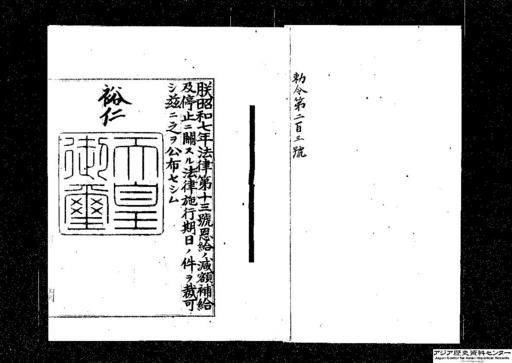 勅令第二百三號
朕昭和七年法律第十三號恩給ノ減額補給
及停止ニ關スル法律施行期日ノ件ヲ裁可
シ玆ニ之ヲ公布セシム
裕仁
天皇
御璽
アジア歴史資料センター
Japan Center for Asian Historical Records